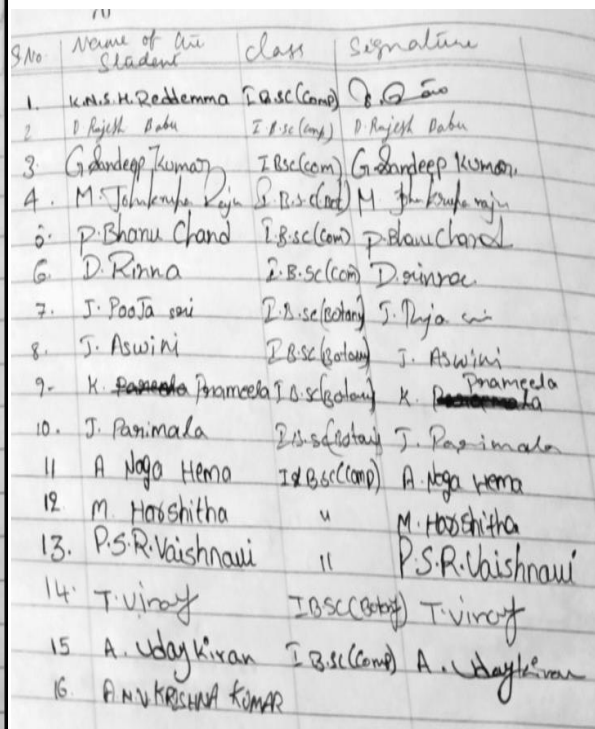 S.No Name of the Student class Signature
1. K.N.S.H. Reddemma I B.SC(Comp)
2 D Rajesh Babu I B.sc(comp) D. Rajesh Babu
3. G Sandeep Kumar I BSC(com) G. Sandeep Kumar.
4. M. Johnkrupa Raju I. B.s.c( M. raju
5. P. Bhanu Chand I.B.sc(com) P. Bhanu Chand
6. D. Rinna I.B.sc(com)
7. J. PooJa sri I.B.sc(Botany) J. Puja sri
8. J. Aswini I BSC(Botany) J. Aswini
9- K. Prameela I B.sc(Botany) K. Prameela
10. J. Parimala I B.sc(Botany) J. Parimala
11 A Naga Hema I B.sc(Comp) A. Naga Hema
12. M. Harshitha " M. Harshitha
13. P.S.R. Vaishnavi 11 P.S.R. Vaishnavi
14. T. Vinay I BSC(Botany) T. Vinay
15 A. Uday Kiran I B.sc(Comp) A. Uday Kiran
16. A N V KRISHNA KUMAR